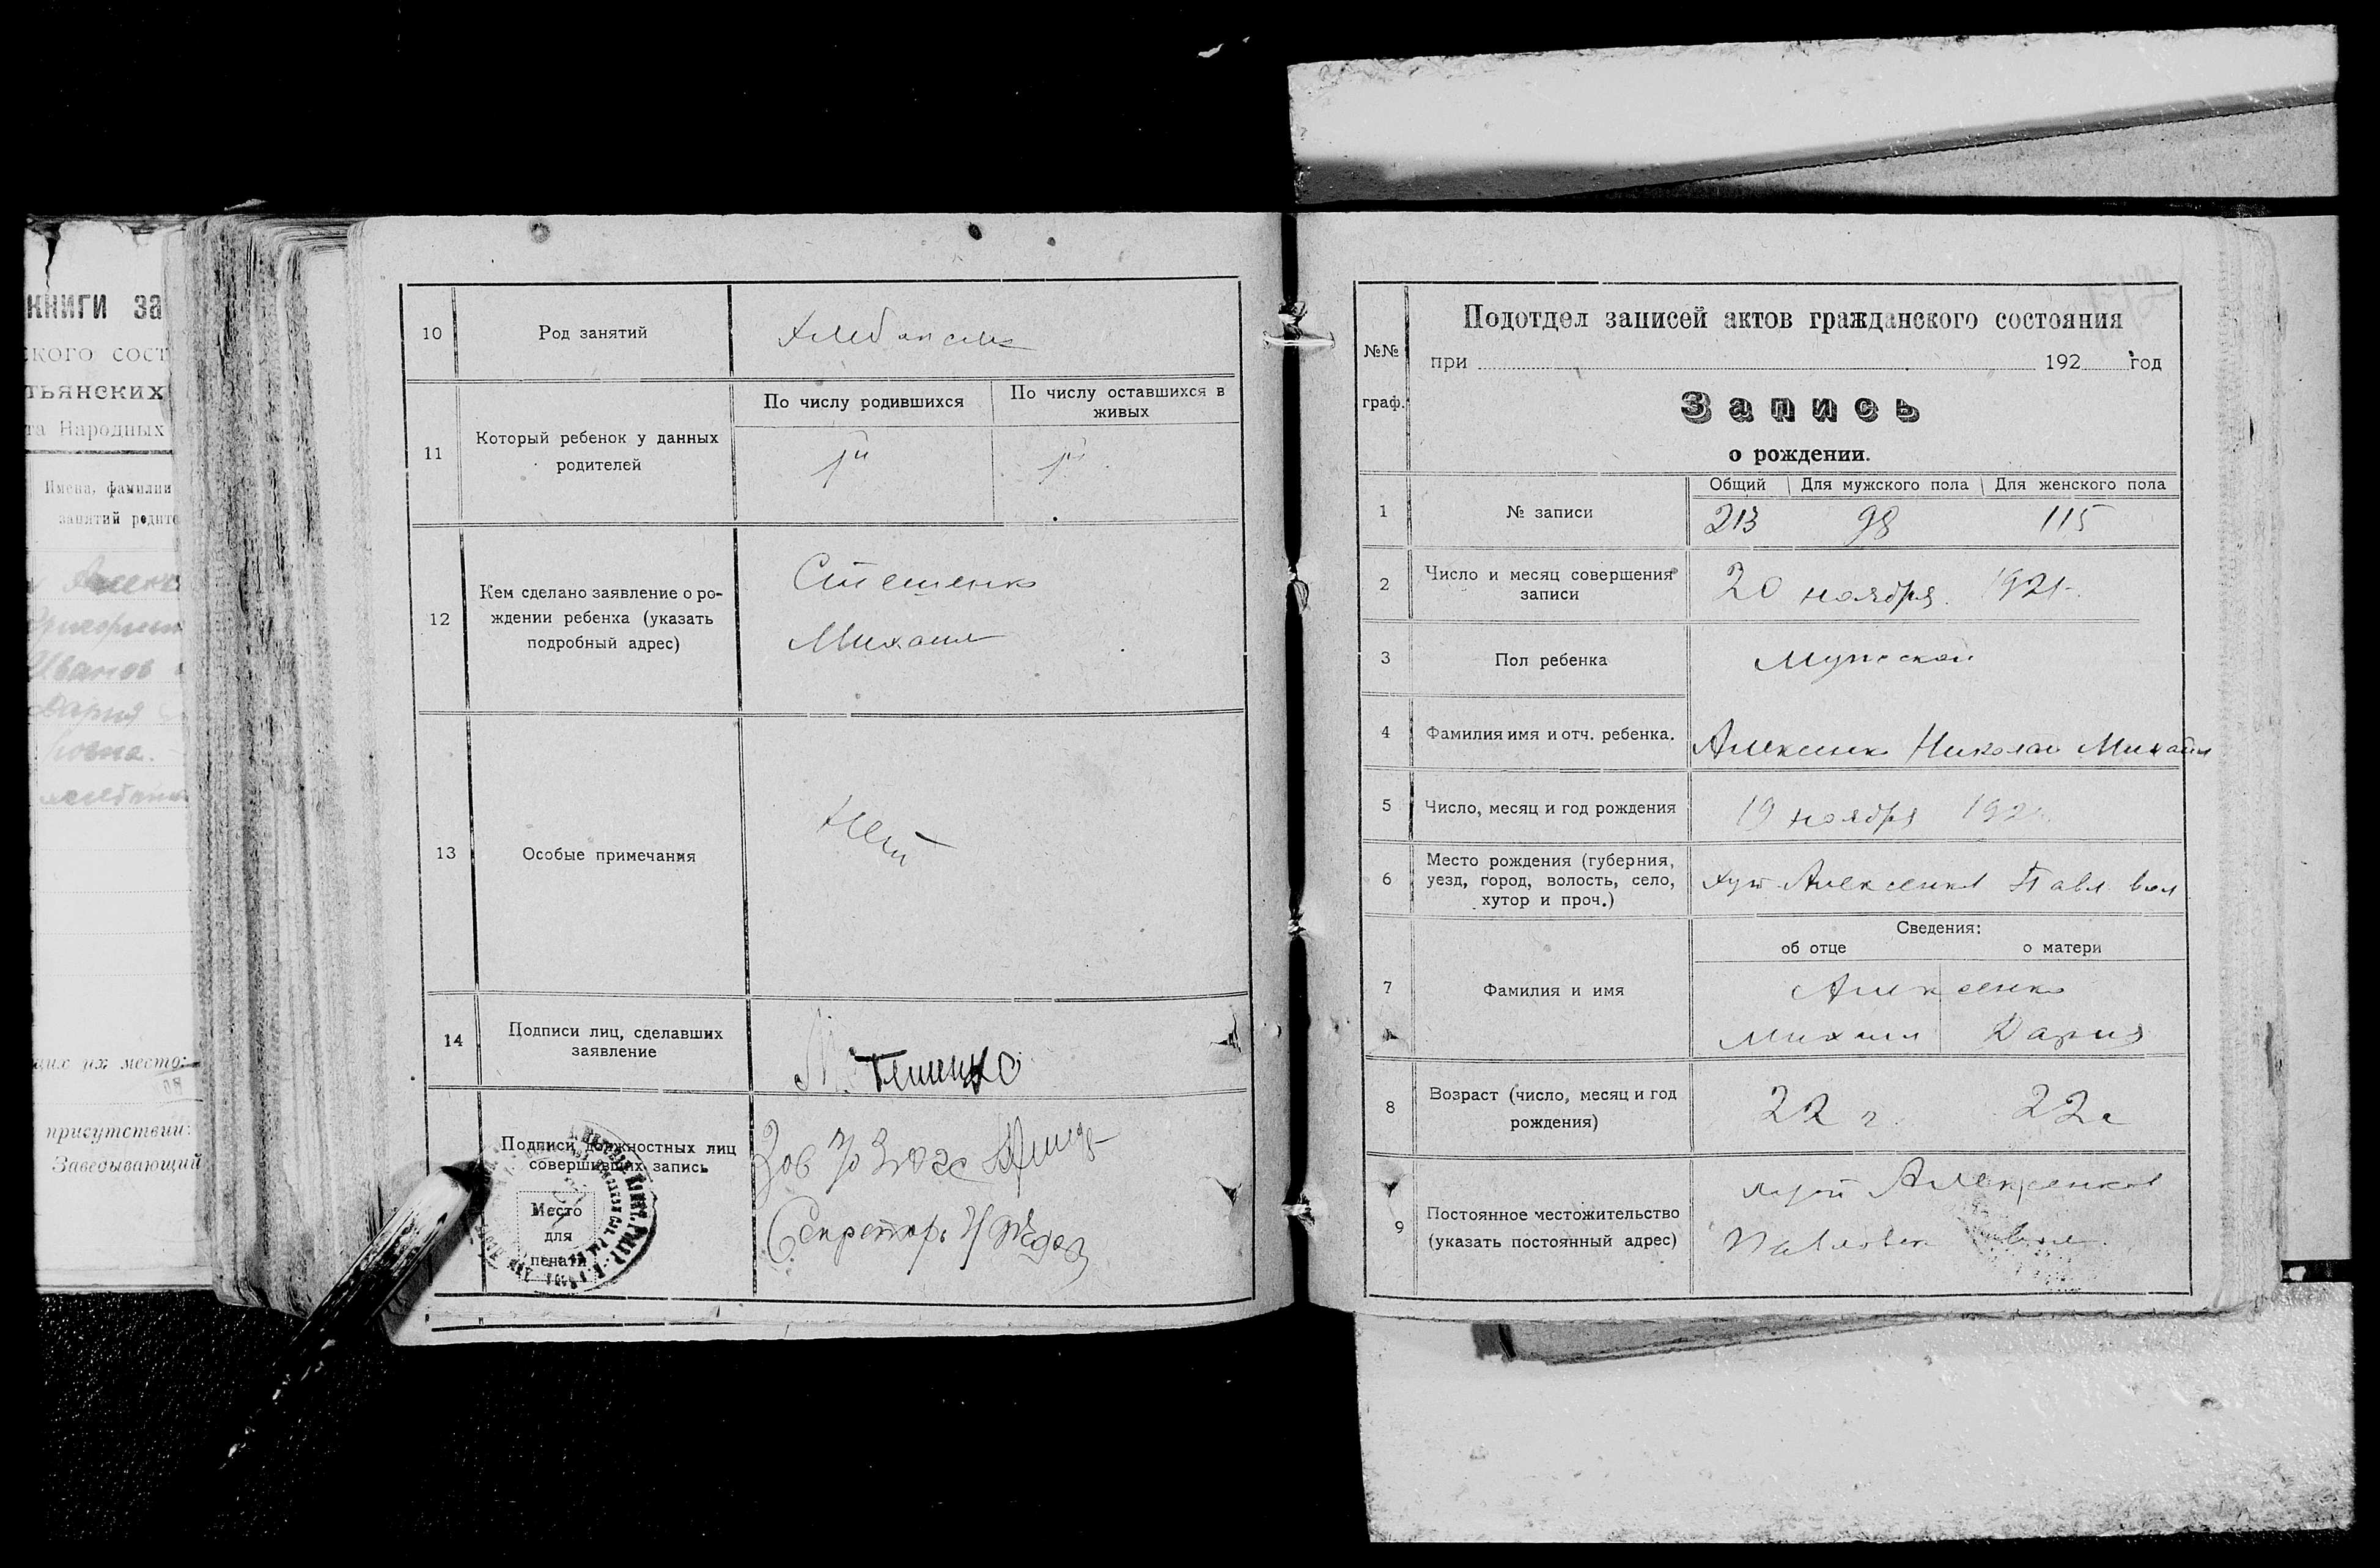 книги за
ского сост
тьянских
та Народных
Имена, фамилии
занятий родите
Иванов
Дария
щих их место:
присутствии:
Заведывающий
10
Род занятий
11
Который ребенок у данных
родителей
По числу родившихся
По числу оставшихся в
живых
12
Кем сделано заявление о ро-
ждении ребенка (указать
подробный адрес)
Стешенко
Михаил
13
Особые примечания
Нет
14
Подписи лиц, сделавших
заявление
Подписи должностных лиц
совершивших запись
Место
для
печати
Секретарь
№№
граф.
Подотдел записей актов гражданского состояния
при 192 год
Запись
о рождении.
Общий Для мужского пола Для женского пола
1
№ записи
213 98 115
2
Число и месяц совершения
записи
20 ноября 1921
3
Пол ребенка
Мужской
4
Фамилия имя и отч. ребенка.
Алексенко Николай Михайл
5
Число, месяц и год рождения
19 ноября 192
6
Место рождения (губерния,
уезд, город, волость, село,
хутор и проч.)
Хут Алексенков Павл. вол
Сведения:
об отце о матери
7
Фамилия и имя
Алексенко
Михаил Дария
8
Возраст (число, месяц и год
рождения)
22 г. 22 г
9
Постоянное местожительство
(указать постоянный адрес)
хутор Алексенков
Павловск вол.